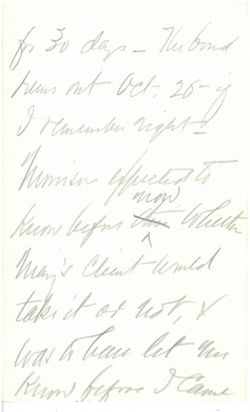 for 30 days - The bond
runs out Oct. 26 - if
I remember right -
Morrison expected to
now
know before whether
May's Client would
take it or not, &
was to have let me
know before I came